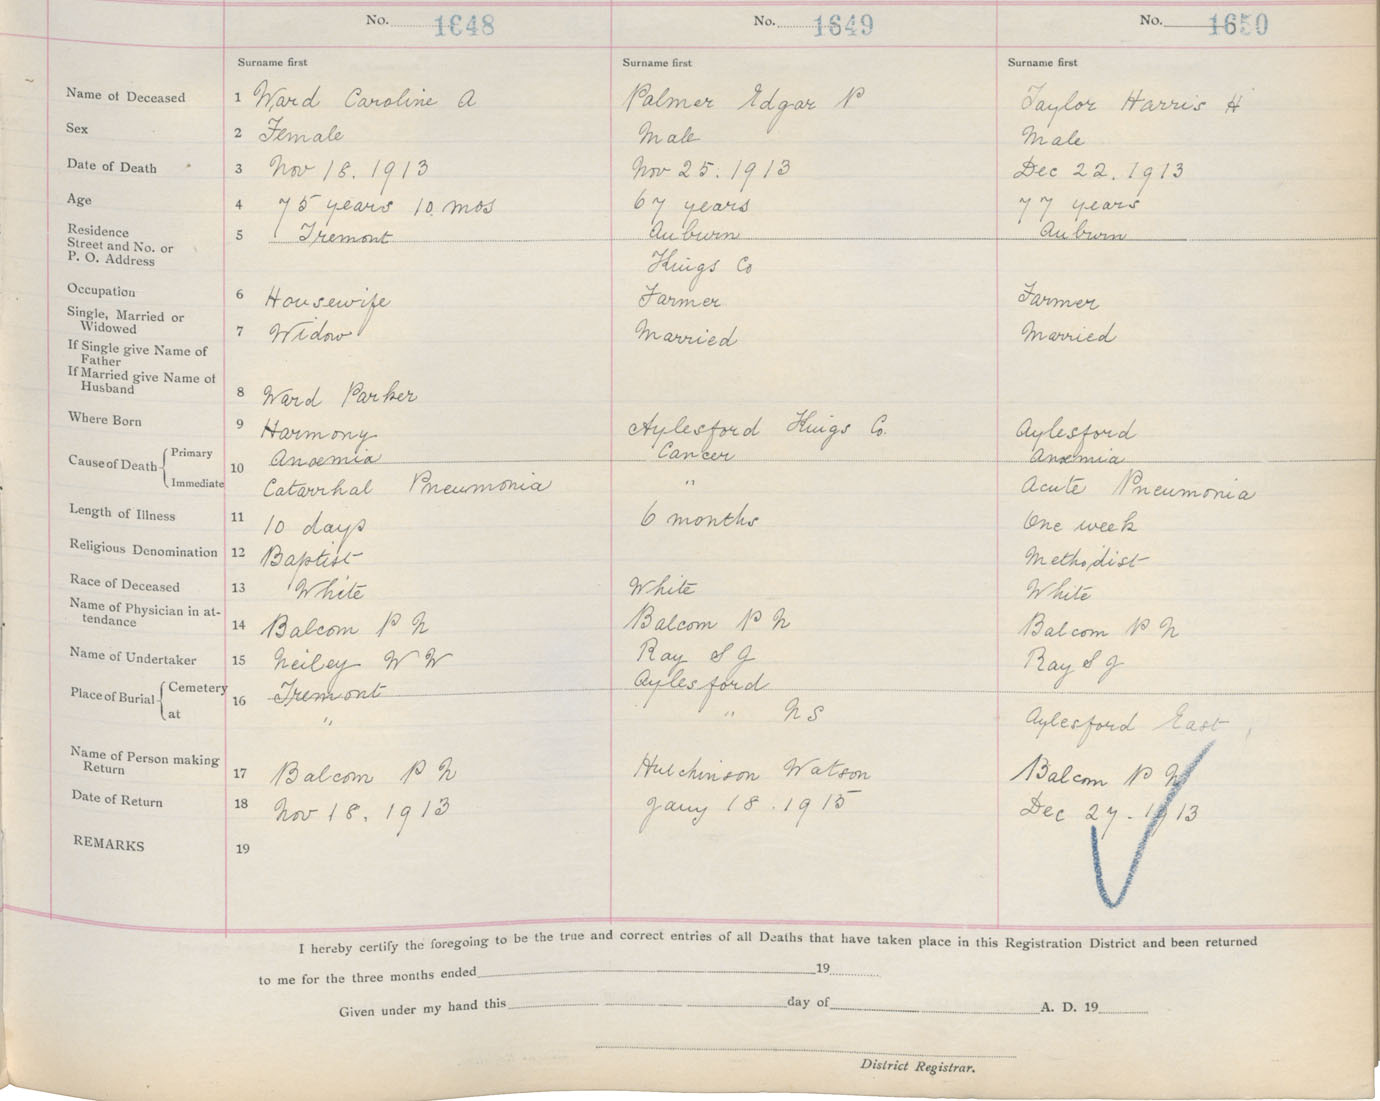 No. 1648 No. 1649 No. 1650
Surname first Surname first Surname first
Name of Deceased 1 Ward Caroline A Palmer Edgar P Taylor Harris H
Sex 2 Female Male Male
Date of Death 3 Nov 18. 1913 Nov 25. 1913 Dec 22. 1913
Age 4 75 years 10 mos 67 years 77 years
Residence
Street and No. or 5 Tremont Auburn Auburn
P. O. Address Kings Co
Occupation 6 Housewife Farmer Farmer
Single, Married or
Widowed 7 Widow Married Married
If Single give Name of
Father
If Married give Name of
Husband 8 Ward Parker
Where Born 9 Harmony Aylesford Kings Co. Aylesford
Cause of Death Primary 10 Anœmia Cancer Anœmia
Immediate Catarrhal Pneumonia " Acute Pneumonia
Length of Illness 11 10 days 6 months One week
Religious Denomination 12 Baptist Methodist
Race of Deceased 13 White White White
Name of Physician in at-
tendance 14 Balcom P N Balcom P N Balcom P N
Name of Undertaker 15 Neiley W W Ray S J Ray S J
Place of Burial Cemetery 16 Tremont Aylesford
at " " NS Aylesford East
Name of Person making
Return 17 Balcom P N Hutchinson Watson Balcom P N
Date of Return 18 Nov 18. 1913 Jany 18. 1915 Dec 27. 1913
REMARKS 19
I hereby certify the foregoing to be the true and correct entries of all Deaths that have taken place in this Registration District and been returned
to me for the three months ended 19
Given under my hand this day of A. D. 19
District Registrar.